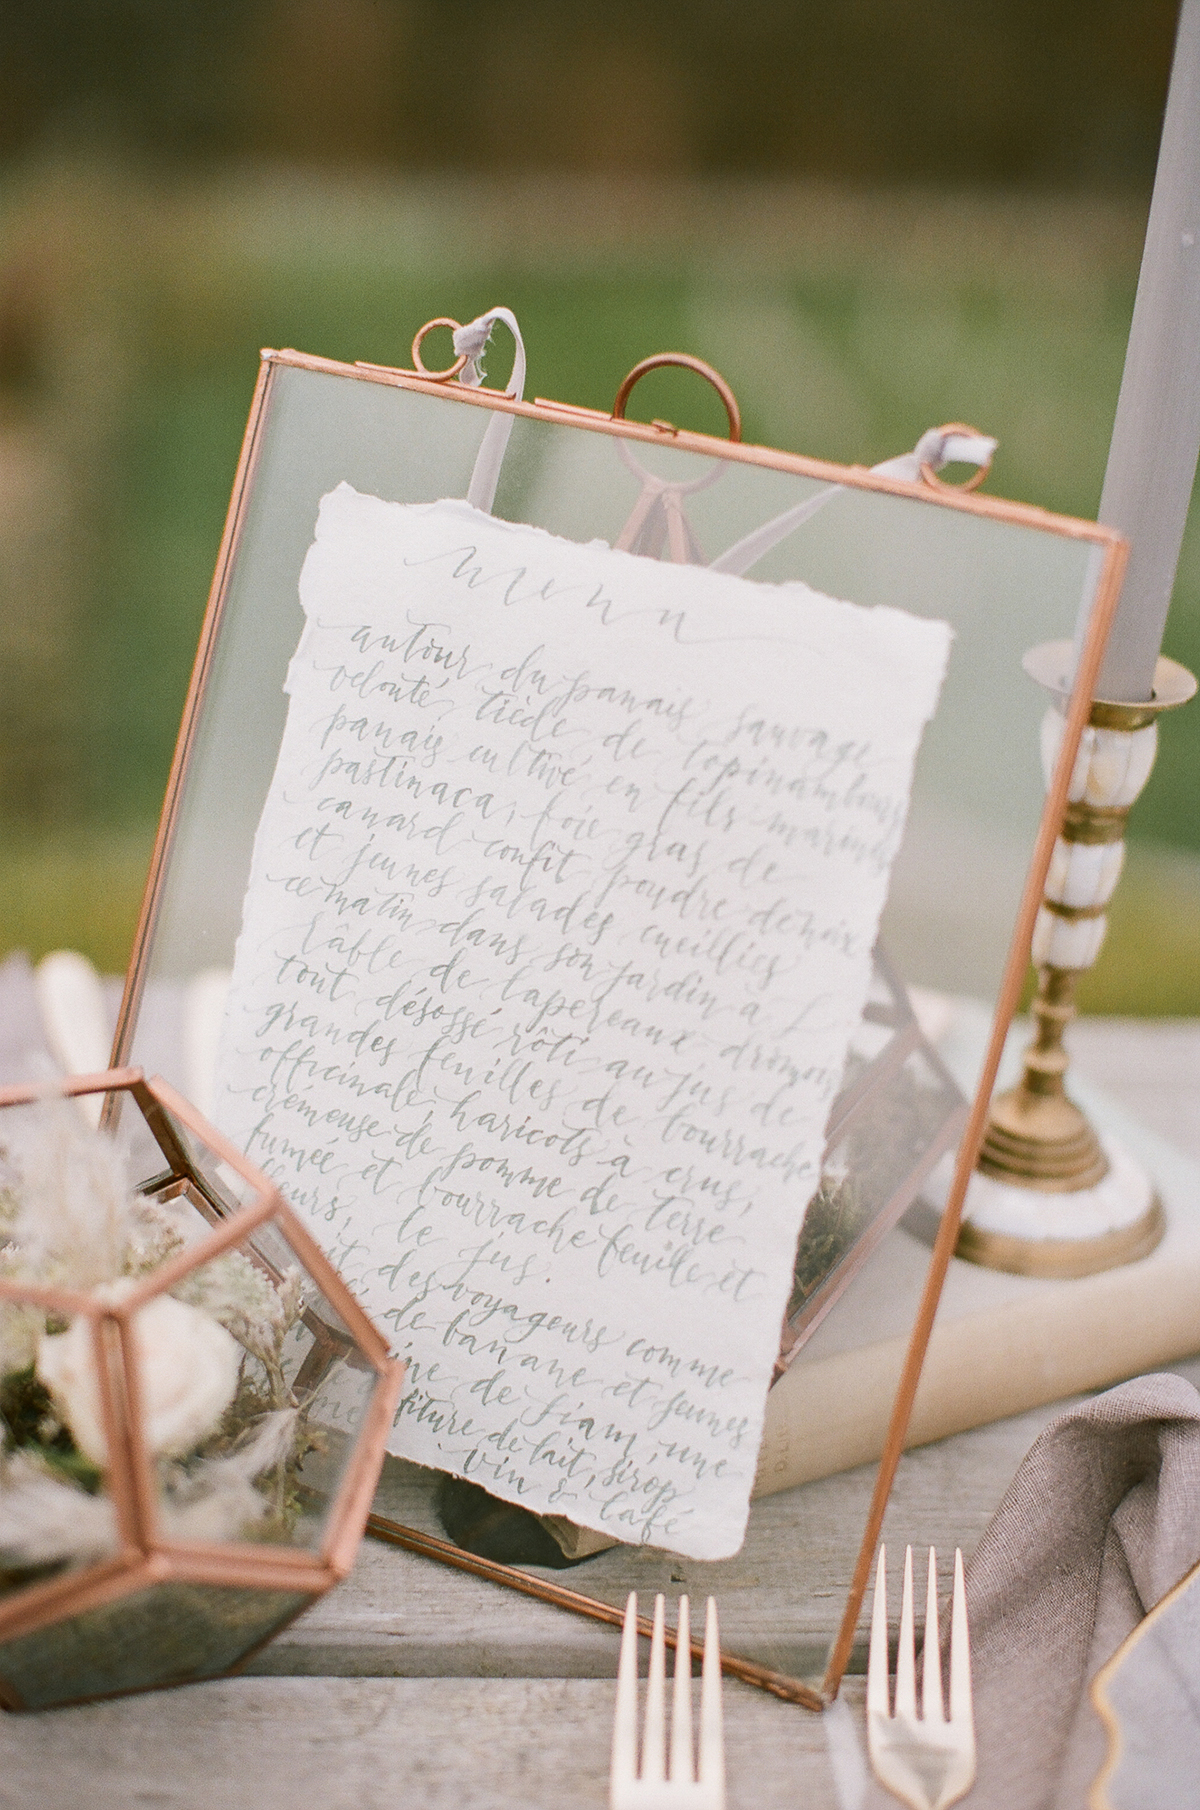 menu
autour du panais sauvage
velouté tiède de topinambours
panais cultivé en fils marinés
pastinaca, foie gras de
canard confit poudre de noix
et jeunes salades cueillies
ce matin dans son jardin à L
râble de lapereaux drômois
tout désossé rôti au jus de
grandes feuilles de bourrache
officinale, haricots à crus,
crémeuse de pomme de terre
fumée et bourrache feuille et
fleurs, le jus.
des voyageurs comme
de banane et jeunes
de Siam, une
fiture de lait, sirop
vin & café